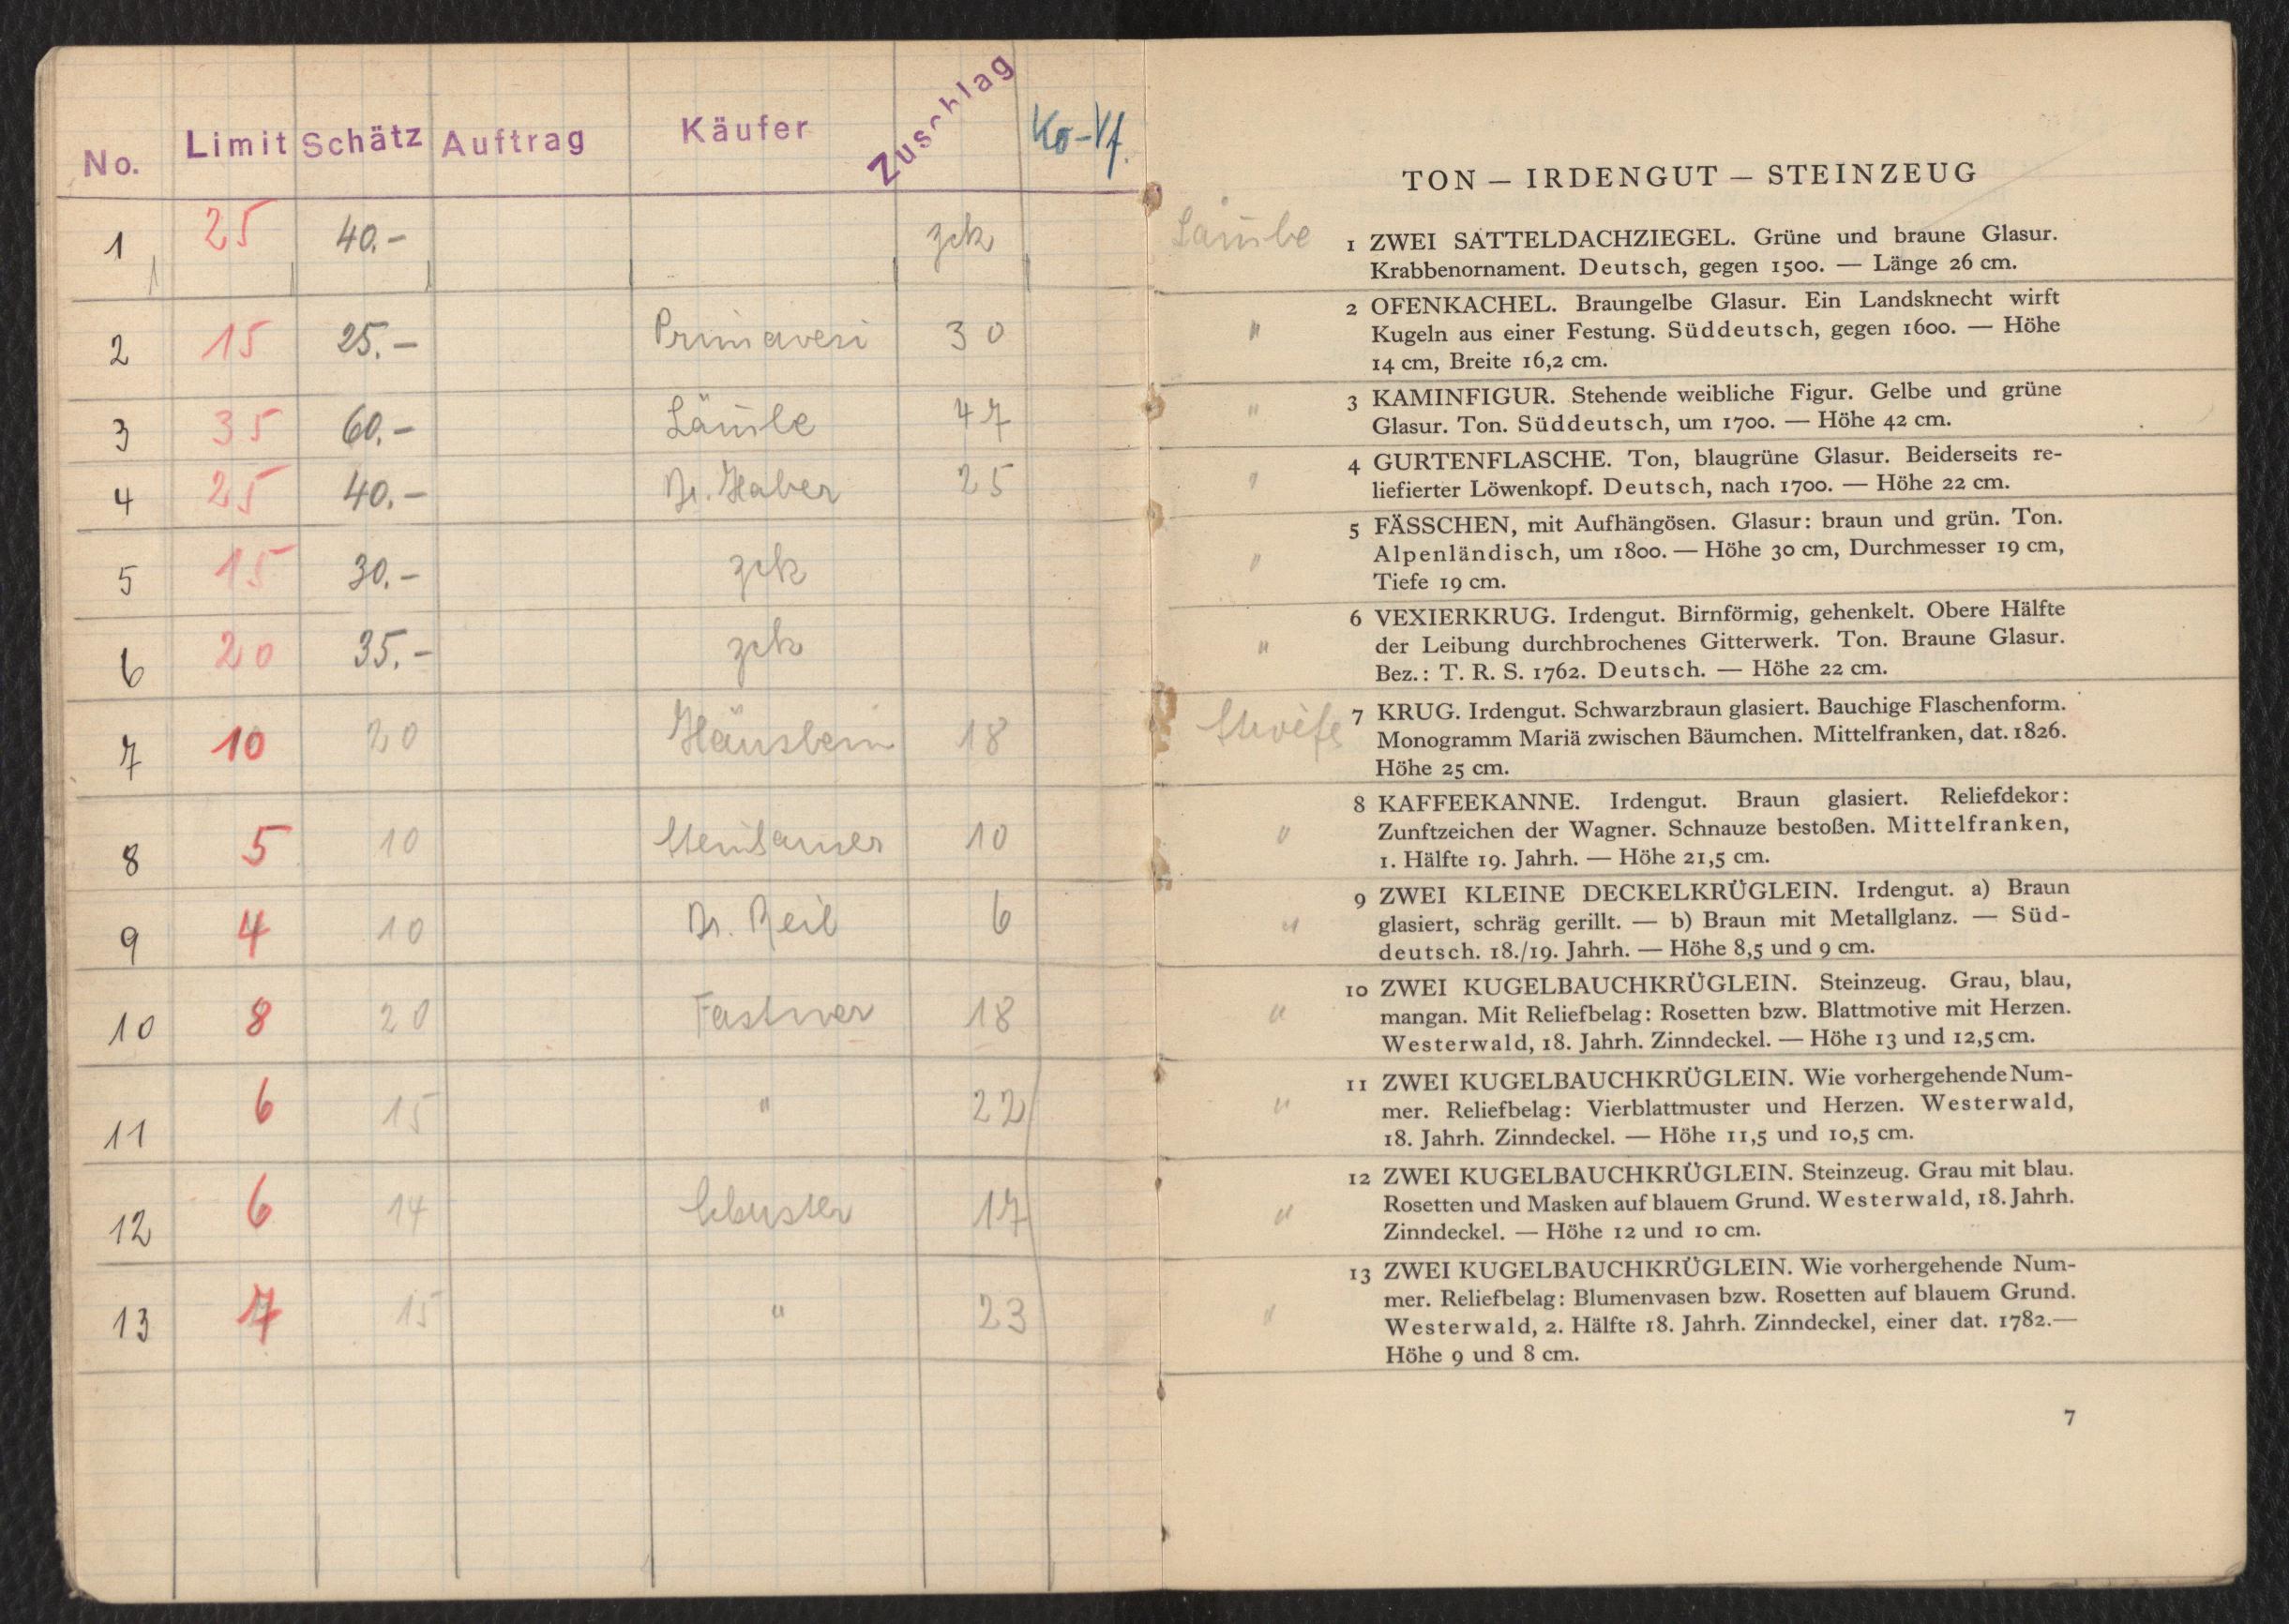 No. Limit Schätz Auftrag Käufer Zuschlag Ko-Vf.
1 25 40.- zck
2 15 25.- Primavesi 30
3 35 60.- 47
4 25 40.- Dr. Haber 25
5 15 30.- zck
6 20 35.- zck
7 10 20 18
8 5 10 10
9 4 10 Dr. Beil 6
10 8 20 Fastner 18
11 6 15 " 22
12 6 14 Schuster 17
13 7 15 " 23
TON — IRDENGUT — STEINZEUG
1 ZWEI SATTELDACHZIEGEL. Grüne und braune Glasur.
Krabbenornament. Deutsch, gegen 1500. — Länge 26 cm.
" 2 OFENKACHEL. Braungelbe Glasur. Ein Landsknecht wirft
Kugeln aus einer Festung. Süddeutsch, gegen 1600. — Höhe
14 cm, Breite 16,2 cm.
" 3 KAMINFIGUR. Stehende weibliche Figur. Gelbe und grüne
Glasur. Ton. Süddeutsch, um 1700. — Höhe 42 cm.
" 4 GURTENFLASCHE. Ton, blaugrüne Glasur. Beiderseits re-
liefierter Löwenkopf. Deutsch, nach 1700. — Höhe 22 cm.
" 5 FÄSSCHEN, mit Aufhängösen. Glasur: braun und grün. Ton.
Alpenländisch, um 1800. — Höhe 30 cm, Durchmesser 19 cm,
Tiefe 19 cm.
" 6 VEXIERKRUG. Irdengut. Birnförmig, gehenkelt. Obere Hälfte
der Leibung durchbrochenes Gitterwerk. Ton. Braune Glasur.
Bez.: T. R. S. 1762. Deutsch. — Höhe 22 cm.
7 KRUG. Irdengut. Schwarzbraun glasiert. Bauchige Flaschenform.
Monogramm Mariä zwischen Bäumchen. Mittelfranken, dat. 1826.
Höhe 25 cm.
" 8 KAFFEEKANNE. Irdengut. Braun glasiert. Reliefdekor:
Zunftzeichen der Wagner. Schnauze bestoßen. Mittelfranken,
1. Hälfte 19. Jahrh. — Höhe 21,5 cm.
" 9 ZWEI KLEINE DECKELKRÜGLEIN. Irdengut. a) Braun
glasiert, schräg gerillt. — b) Braun mit Metallglanz. — Süd-
deutsch. 18./19. Jahrh. — Höhe 8,5 und 9 cm.
" 10 ZWEI KUGELBAUCHKRÜGLEIN. Steinzeug. Grau, blau,
mangan. Mit Reliefbelag: Rosetten bzw. Blattmotive mit Herzen.
Westerwald, 18. Jahrh. Zinndeckel. — Höhe 13 und 12,5 cm.
" 11 ZWEI KUGELBAUCHKRÜGLEIN. Wie vorhergehende Num-
mer. Reliefbelag: Vierblattmuster und Herzen. Westerwald,
18. Jahrh. Zinndeckel. — Höhe 11,5 und 10,5 cm.
" 12 ZWEI KUGELBAUCHKRÜGLEIN. Steinzeug. Grau mit blau.
Rosetten und Masken auf blauem Grund. Westerwald, 18. Jahrh.
Zinndeckel. — Höhe 12 und 10 cm.
" 13 ZWEI KUGELBAUCHKRÜGLEIN. Wie vorhergehende Num-
mer. Reliefbelag: Blumenvasen bzw. Rosetten auf blauem Grund.
Westerwald, 2. Hälfte 18. Jahrh. Zinndeckel, einer dat. 1782.—
Höhe 9 und 8 cm.
7